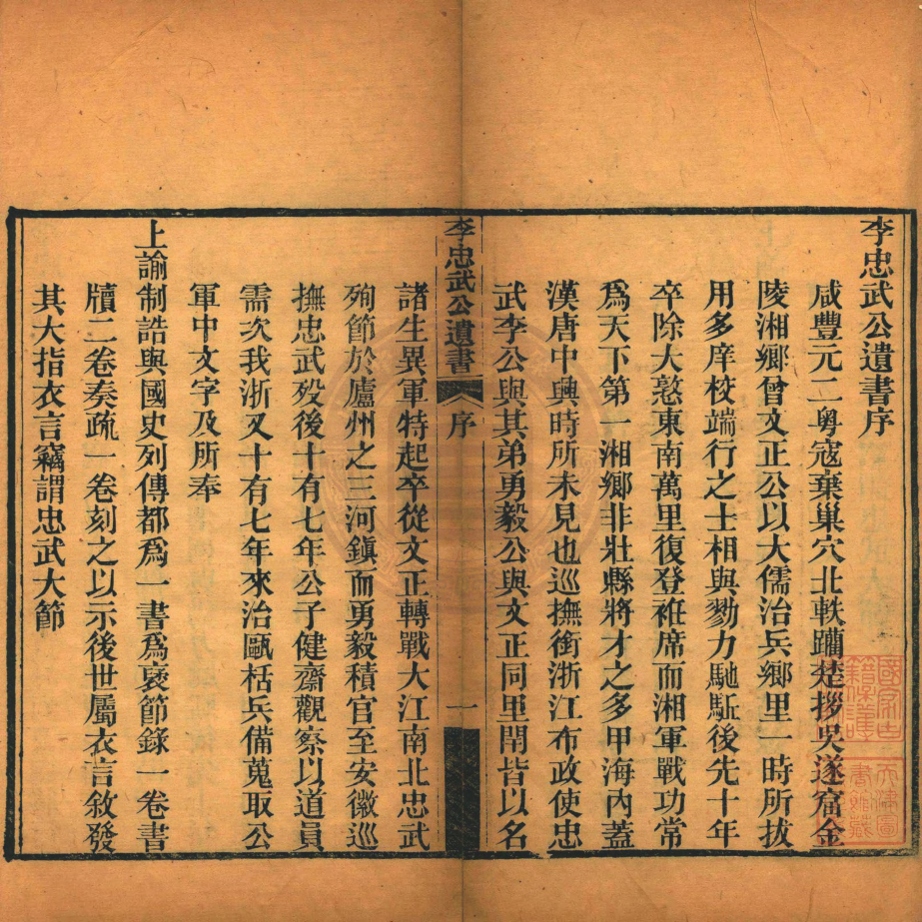 李忠武公遺書序
咸豐元二粤寇棄巢穴北軼躪楚捋吳遂窟金
陵湘鄉曾文正公以大儒治兵鄉里一時所拔
用多庠校端行之士相與勠力馳駈後先十年
卒除大憝東南萬里復登袵席而湘軍戰功常
爲天下第一湘鄉非壯縣將才之多甲海內蓋
漢唐中興時所未見也巡撫銜浙江布政使忠
武李公與其弟勇毅公與文正同里閈皆以名
李忠武公遺書
序
一
諸生異軍特起卒從文正轉戰大江南北忠武
殉節於廬州之三河鎮而勇毅積官至安徽巡
撫忠武歿後十有七年公子健齋觀察以道員
需次我浙又十有七年來治甌栝兵備蒐取公
軍中文字及所奉
上諭制誥與國史列傳都爲一書爲褒節錄一卷書
牘二卷奏疏一卷刻之以示後世屬衣言敘發
其大指衣言竊謂忠武大節
國家古
籍保護
天津圖
書館藏